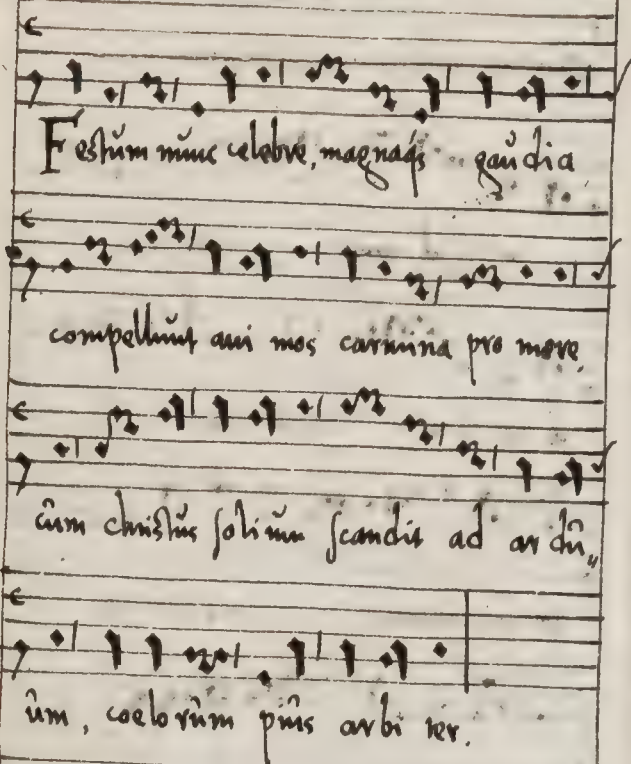 Festum nunc celebre, magnaqs gaudia
compellunt ani mos carmina pro mere
cum christus solium scandit ad ardu„
um, coelorum pius arbi ter.